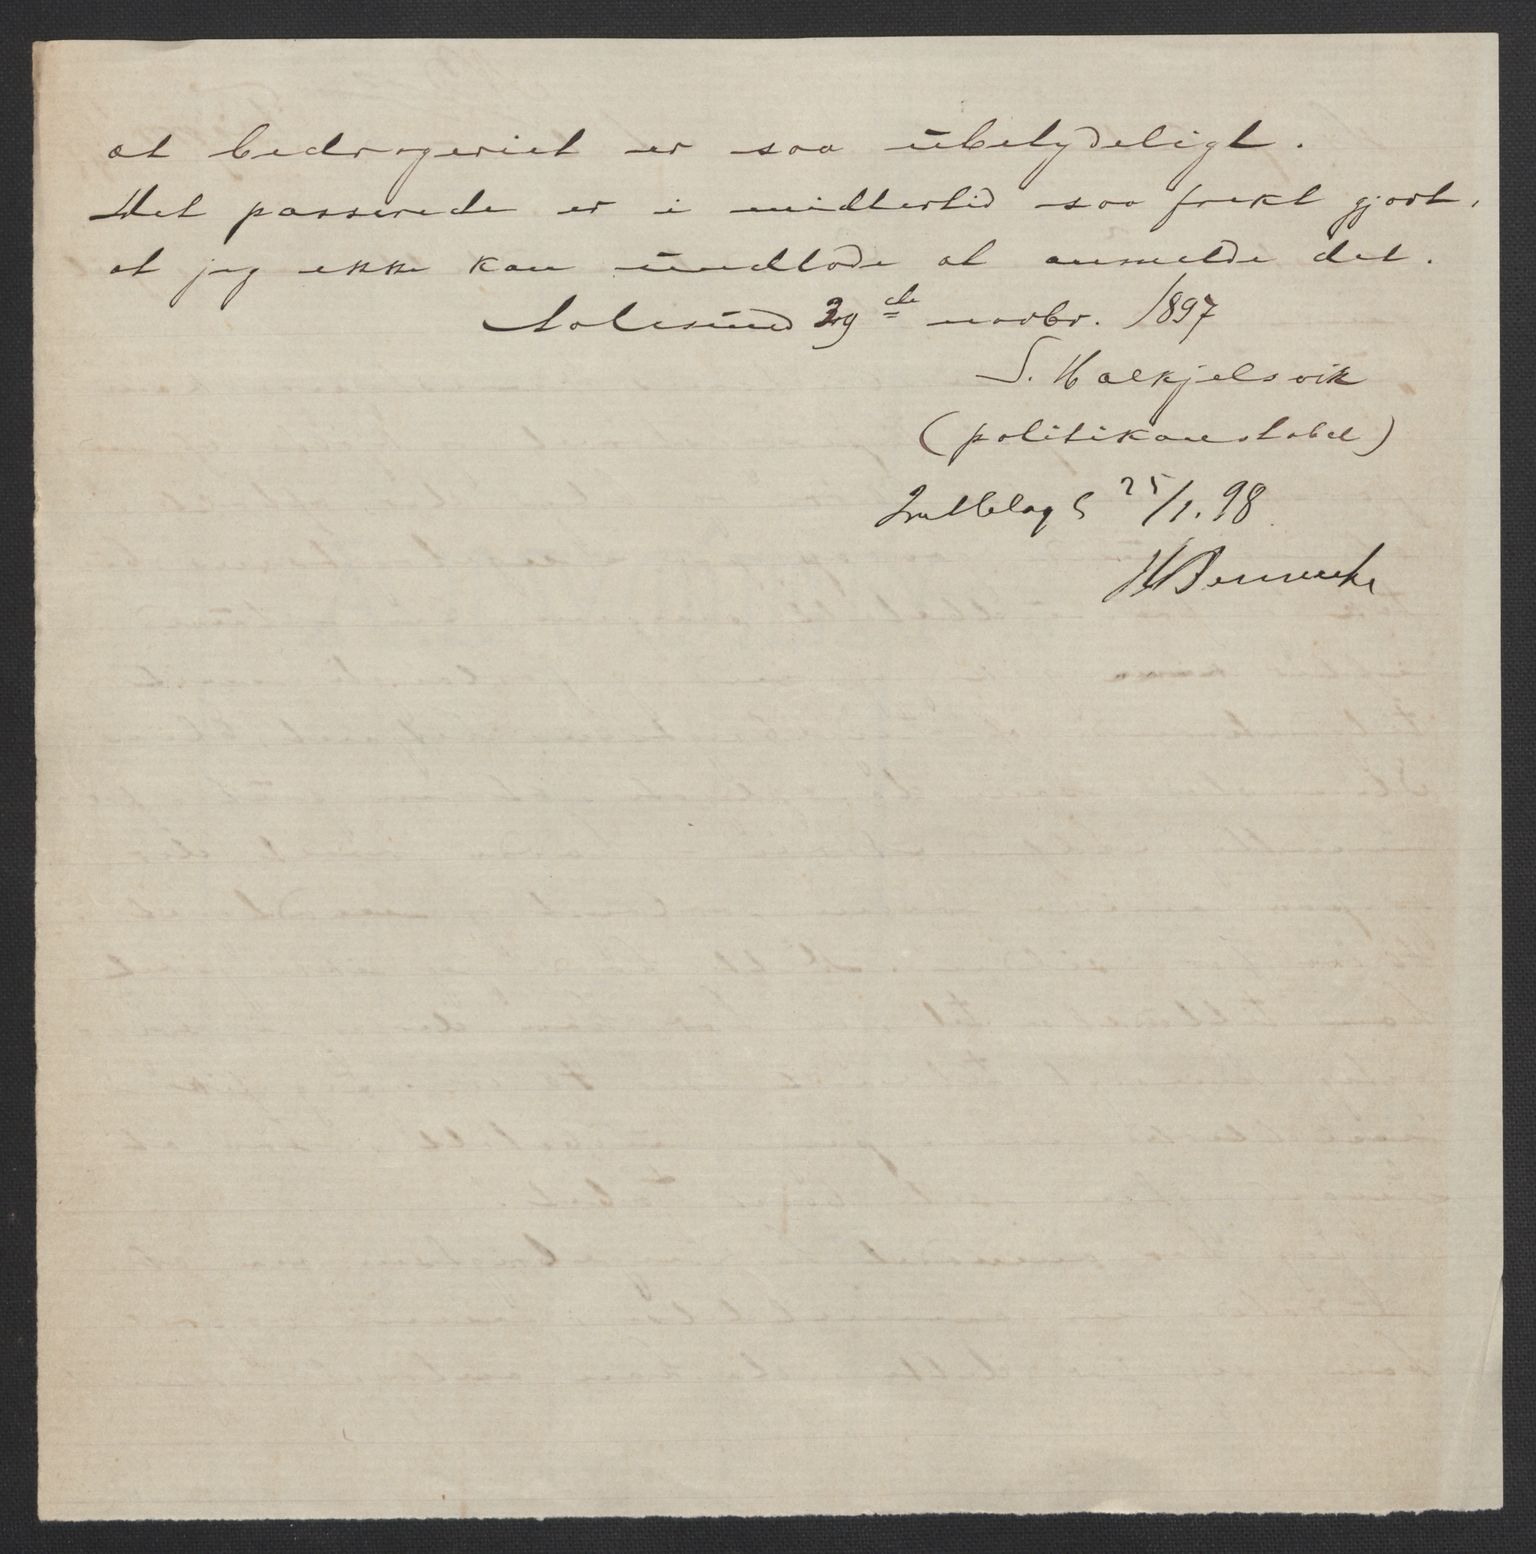 at bedrageriet er saa ubetydeligt.
Det passerede er i midlertid saa frekt gjort,
at jeg ikke kan undlade at anmelde det.
Aalesund 29de novbr. 1897
S. Halkjelsvik
(politikonstabel)
25/1. 98